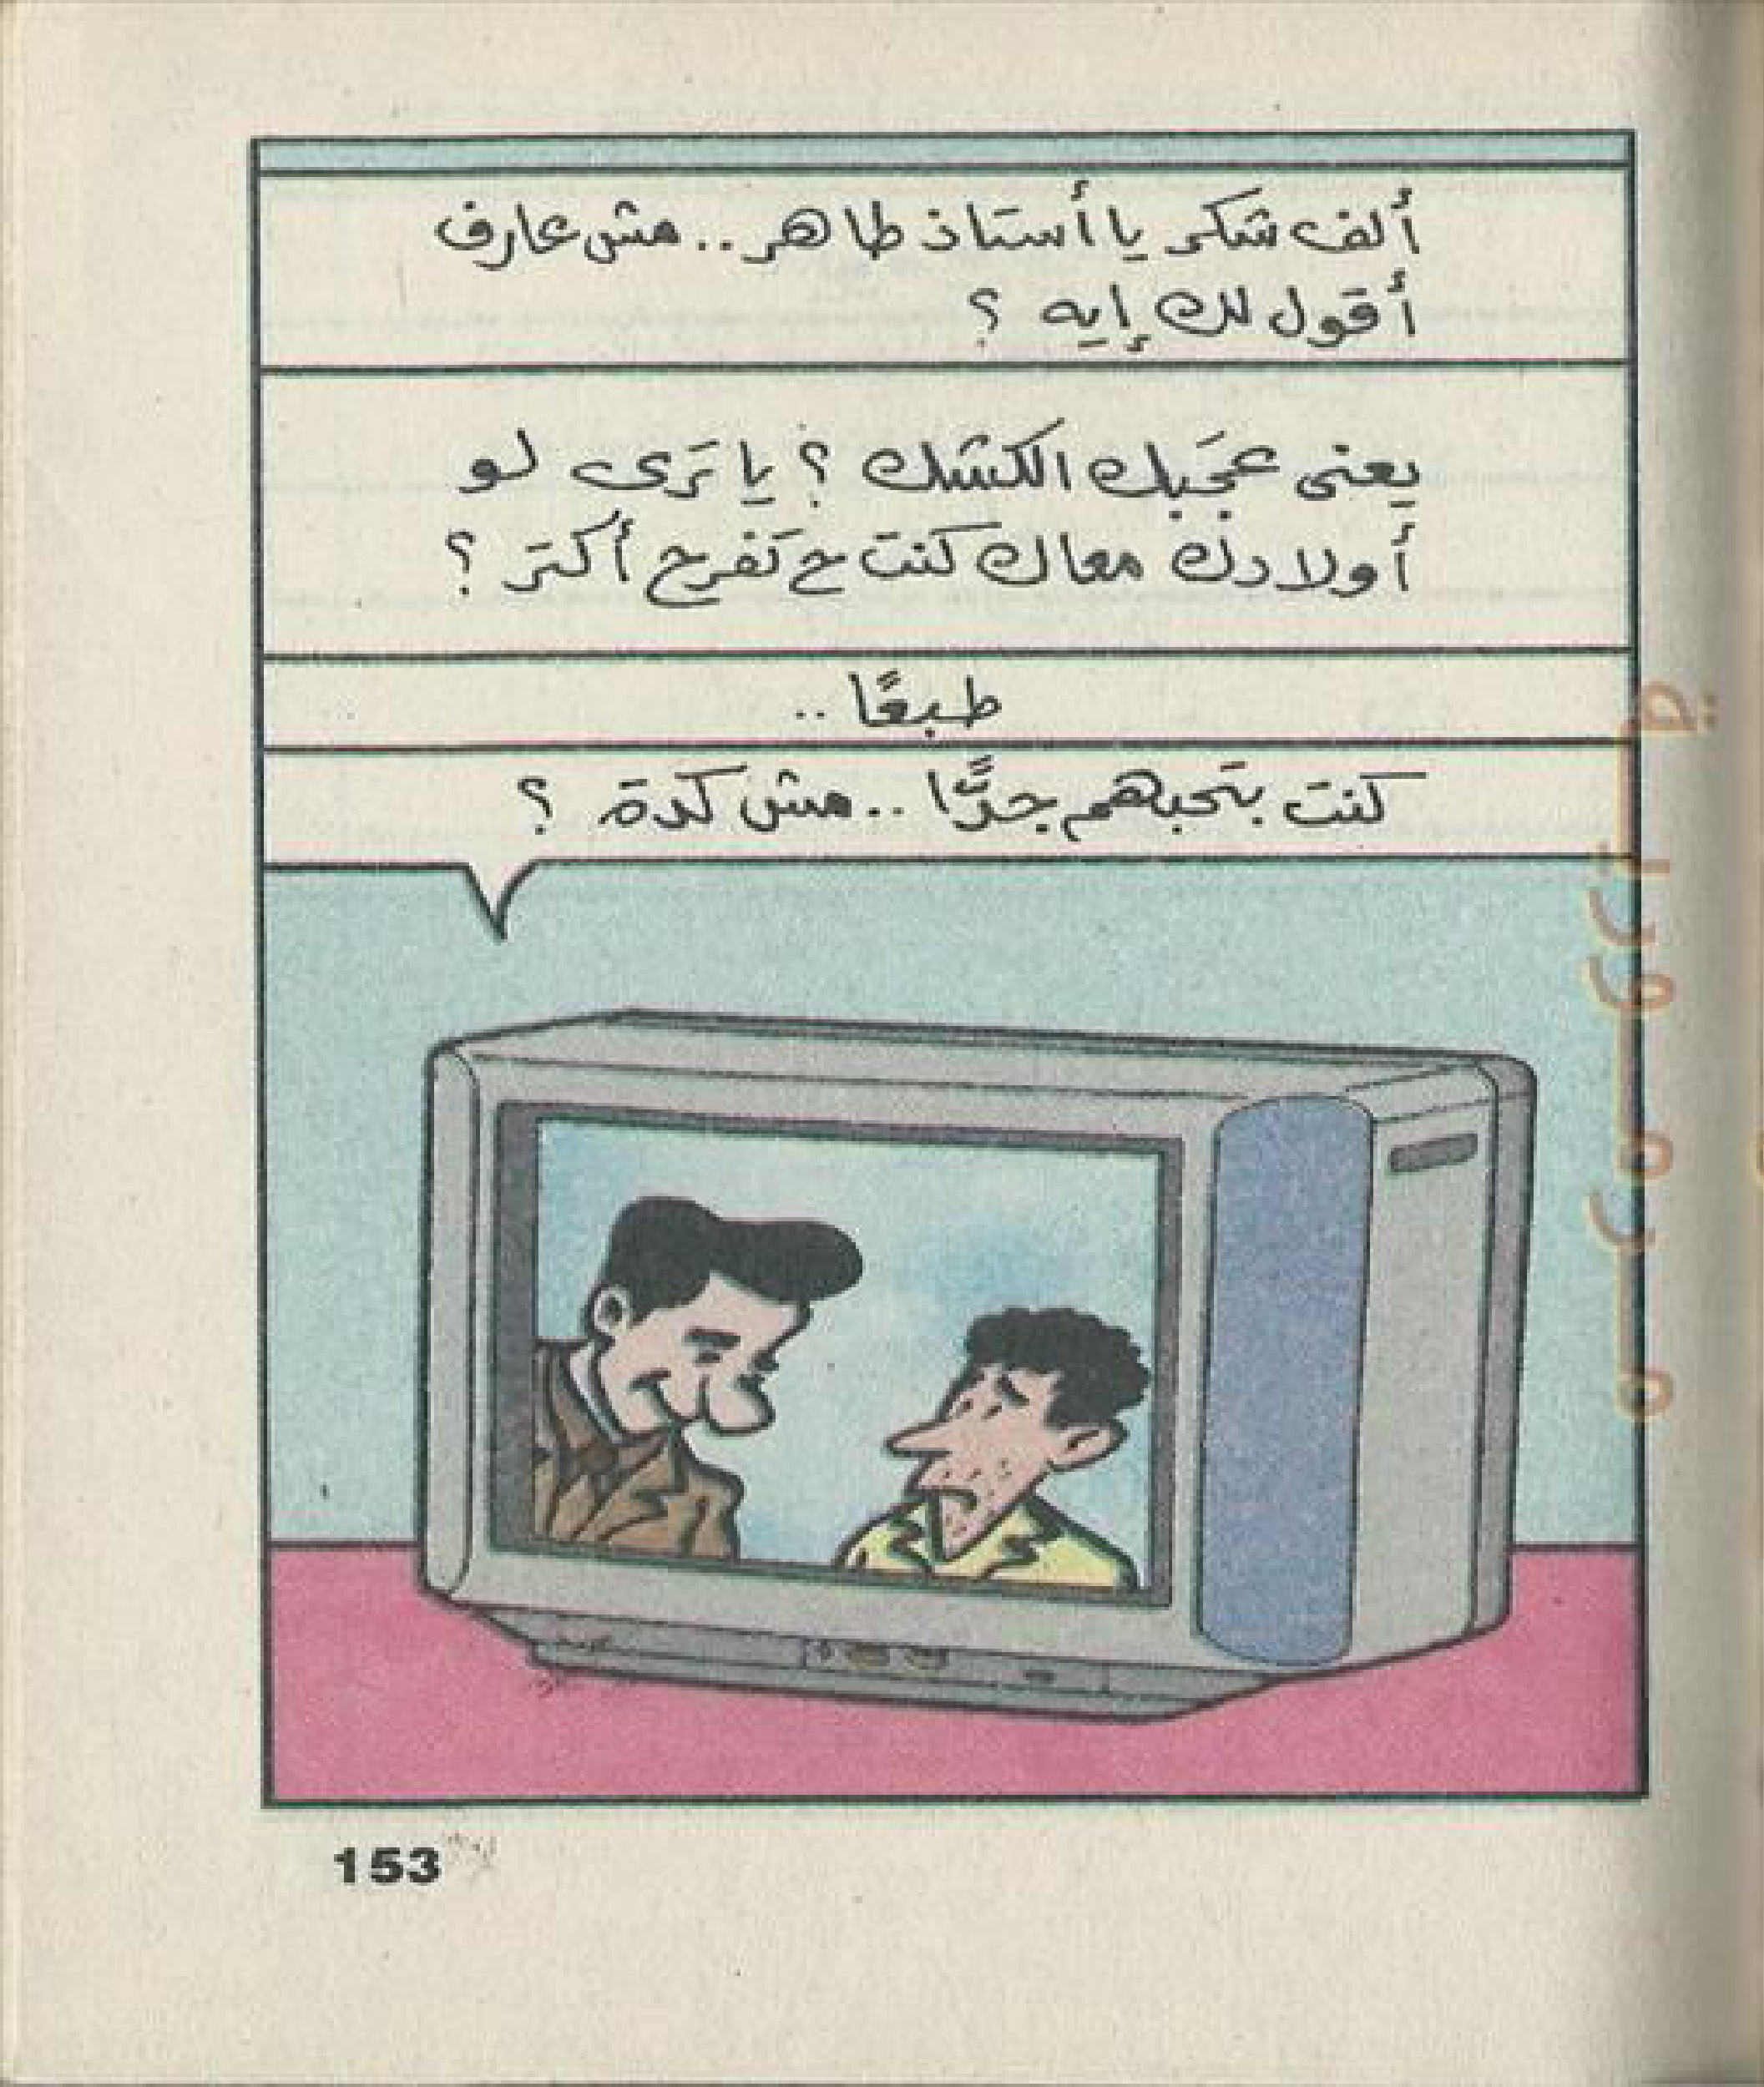 ألف شكر يا أستاذ طاهر.. مش عارف
أقول لك إيه ؟
يعنى عجَبك الكشك ؟ يا تَرى لو
أولادك معاك كنت ح تَفرح أكتر ؟
طبعًا ..
كنت بتحبهم جدًّا .. مش كدة ؟
153